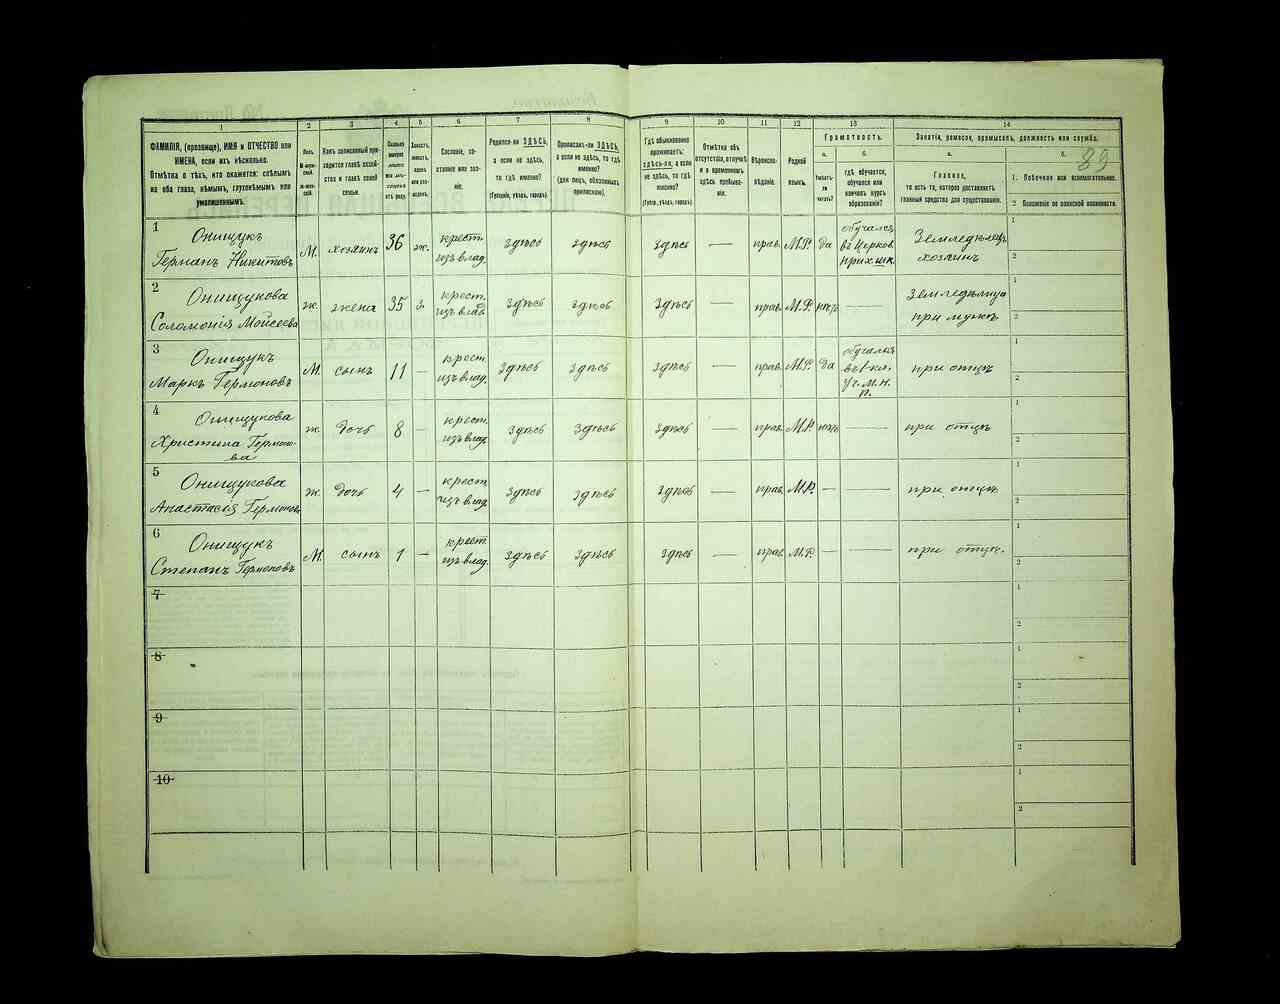 89
1
2
3
4
5
6
7
8
9
10
11
12
13
14
ФАМИЛІЯ, (прозвище), ИМЯ и ОТЧЕСТВО или
ИМЕНА, если ихъ нѣсколько.
Отмѣтка о тѣхъ, кто окажется: слѣпымъ
на оба глаза, нѣмымъ, глухонѣмымъ или
умалишеннымъ.
Какъ записанный при-
ходится главѣ хозяй-
ства и главѣ своей
семьи.
Сословіе, со-
стояніе или зва-
ніе.
Родился-ли ЗДѢСЬ,
а если не здѣсь,
то гдѣ именно?
(Губернія, уѣздъ, городъ).
Приписанъ-ли ЗДѢСЬ,
а если не здѣсь, то гдѣ
именно?
(для лицъ, обязанныхъ
припиской).
Гдѣ обыкновенно
проживаетъ:
здѣсь-ли, а если
не здѣсь, то гдѣ
именно?
(Губер., уѣздъ, городъ).
Отмѣтка объ
отсутствіи, отлучкѣ
и о временномъ
здѣсь пребыва-
ніи.
Вѣроиспо-
вѣданіе.
Родной
языкъ.
Грамотность.
а.
б.
Умѣетъ-
ли
читать?
гдѣ обучается,
обучался или
кончилъ курсъ
образованія?
Занятіе, ремесло, промыселъ, должность или служба.
а.
б.
Главное,
то есть то, которое доставляетъ
главныя средства для существованія.
1. Побочное или вспомогательное.
2 Положеніе по воинской повинности.
1
Онищукъ
Германъ Никитовъ
М.
хозяинъ
36
ж.
крест.
изъ влад.
здѣсь
здѣсь
здѣсь
—
прав.
М.Р.
да
обучался
въ Церков.
прих. шк.
Земледѣлецъ
хозяинъ
1
2
2
Онищукова
Соломонія Моисеева
ж.
жена
35
з.
крест.
изъ влад.
здѣсь
здѣсь
здѣсь
—
прав.
М.Р.
нѣтъ
—
земледѣлица
при мужѣ
1
2
3
Онищукъ
Маркъ Гермоновъ
М.
сынъ
11
—
крест.
изъ влад.
здѣсь
здѣсь
здѣсь
—
прав.
М.Р.
да
обучался
въ 1-кл.
Уч. М. Н.
П.
при отцѣ
1
2
4
Онищукова
Христина Гермоно-
ва
ж.
дочь
8
—
крест.
изъ влад.
здѣсь
здѣсь
здѣсь
—
прав.
М.Р.
нѣтъ
—
при отцѣ
1
2
5
Онищукова
Анастасія Гермонова
ж.
дочь
4
—
крест.
изъ влад.
здѣсь
здѣсь
здѣсь
—
прав.
М.Р.
—
при отцѣ
1
2
6
Онищукъ
Степанъ Гермоновъ
М.
сынъ
1
—
крест.
изъ влад.
здѣсь
здѣсь
здѣсь
—
прав.
М.Р.
—
—
при отцѣ.
1
2
7
1
2
8
1
2
9
1
2
10
1
2